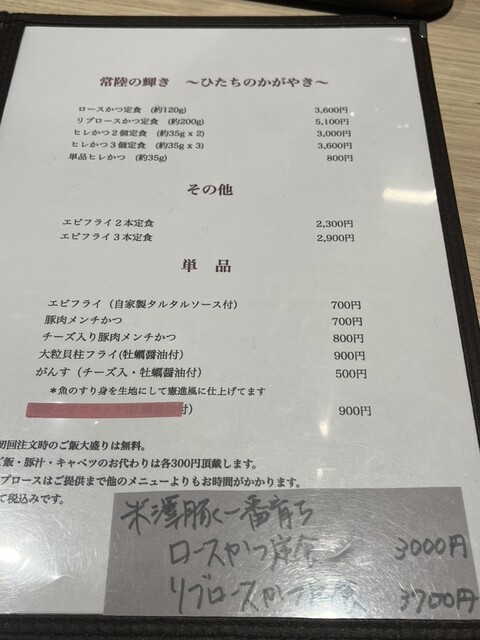 常陸の輝き ～ひたちのかがやき～
ロースかつ定食 (約120g) 3,600円
リブロースかつ定食 (約200g) 5,100円
ヒレかつ２個定食 (約35g x 2) 3,000円
ヒレかつ３個定食 (約35g x 3) 3,600円
単品ヒレかつ (約35g) 800円
その他
エビフライ２本定食 2,300円
エビフライ３本定食 2,900円
単品
エビフライ（自家製タルタルソース付） 700円
豚肉メンチかつ 700円
チーズ入り豚肉メンチかつ 800円
大粒貝柱フライ(牡蠣醤油付) 900円
がんす（チーズ入・牡蠣醤油付） 500円
＊魚のすり身を生地にして憲進風に仕上げてます
付） 900円
初回注文時のご飯大盛りは無料。
ご飯・豚汁・キャベツのお代わりは各300円頂戴します。
ブロースはご提供まで他のメニューよりもお時間がかかります。
て税込みです。
米澤豚一番育ち
ロースかつ定食 3000円
リブロースかつ 3700円